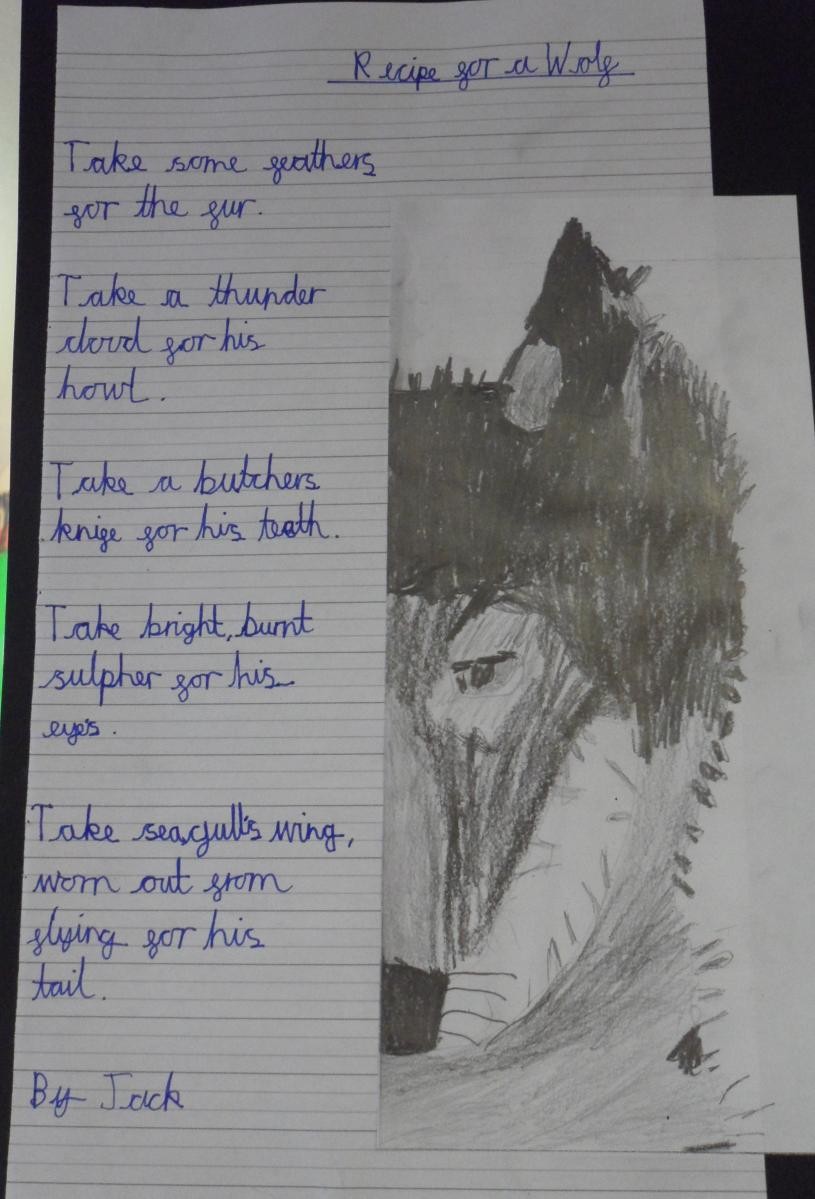 Recipe for a Wolf
Take some feathers
for the fur.
Take a thunder
cloud for his
howl.
Take a butchers
knife for his teeth.
Take bright, burnt
sulpher for his
eyes.
Take seagull's wing,
worn out from
flying for his
tail.
By Jack